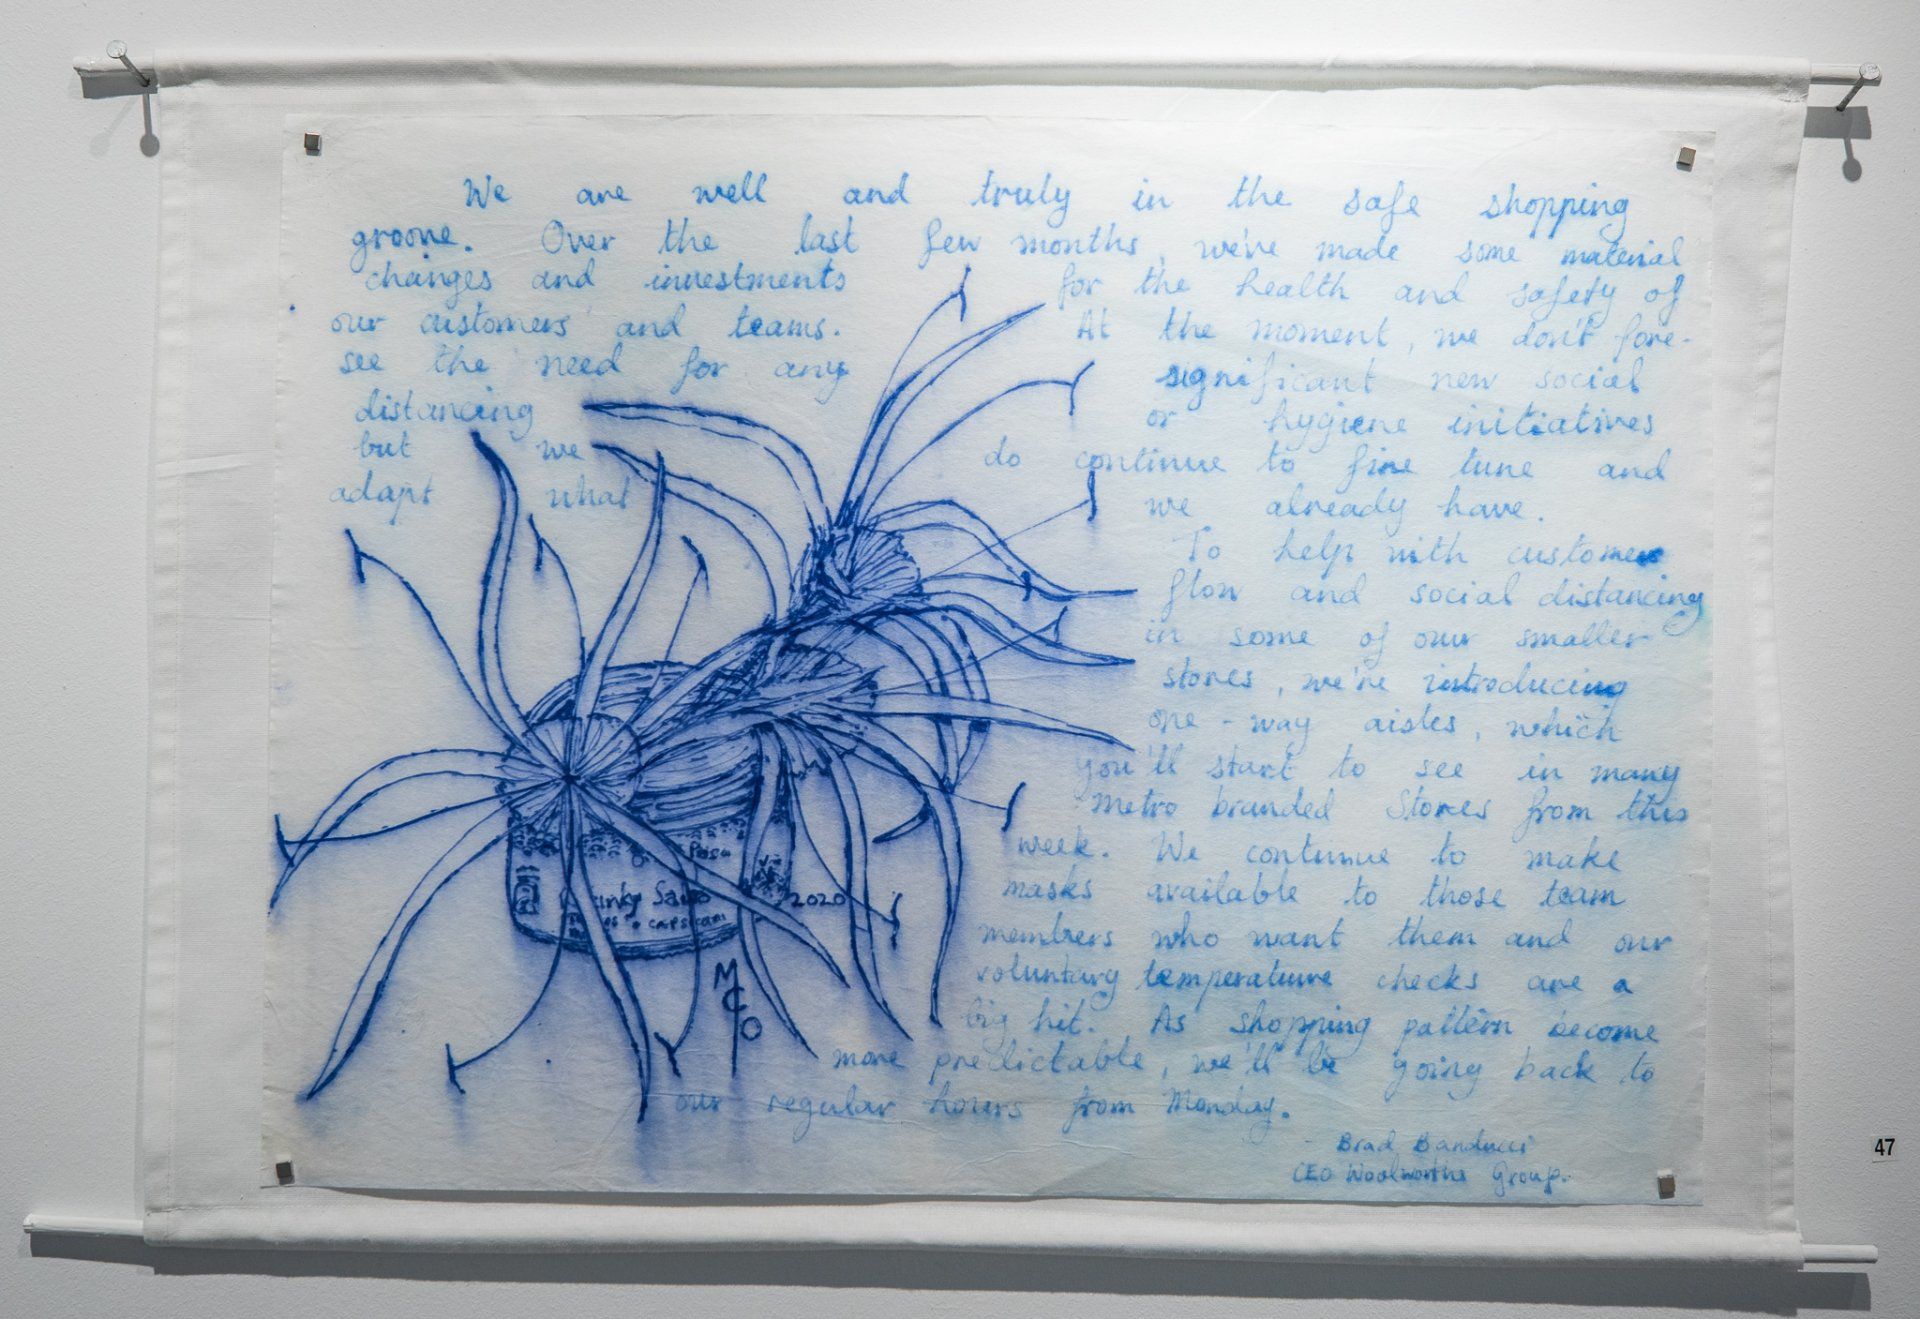 We are well and truly in the safe shopping
groove. Over the last few months, we've made some material
changes and investments for the health and safety of
our customers and teams. At the moment, we don't fore-
see the need for any significant new social
distancing or hygiene initiatives
but we do continue to fine tune and
adapt what we already have.
To help with customer
flow and social distancing
in some of our smaller
stores, we're introducing
one-way aisles, which
you'll start to see in many
metro branded Stores from this
week. We continue to make
masks available to those team
members who want them and our
voluntary temperature checks are a
big hit. As shopping pattern become
more predictable, we'll be going back to
our regular hours from Monday.
Brad Banducci
CEO Woolworths Group.
2020
capsicum
MCO
47